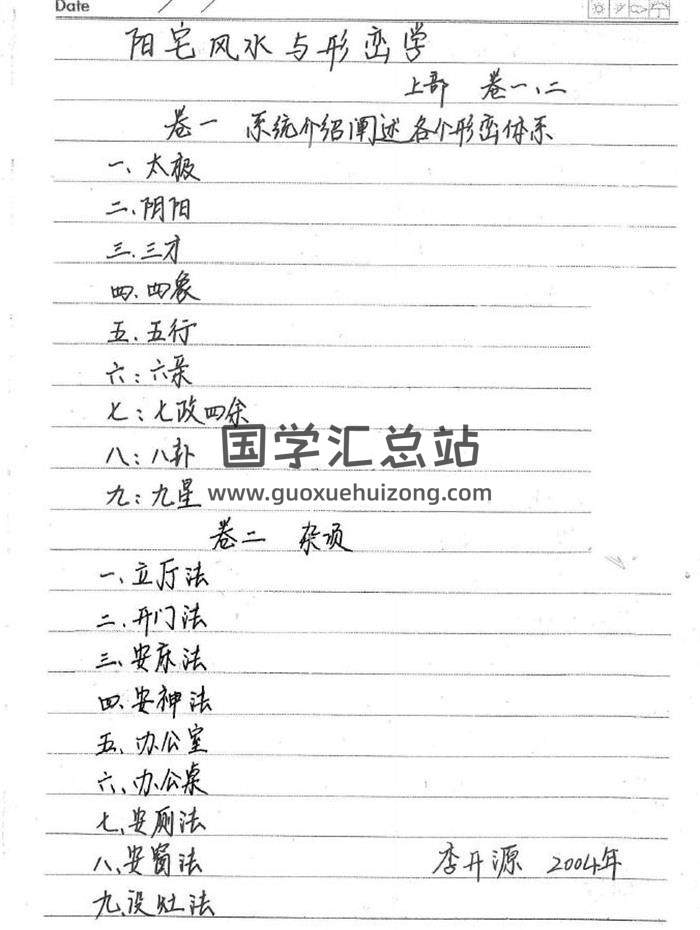 Date
阳宅风水与形峦学
上部 卷一、二
卷一 系统介绍阐述各个形峦体系
一、太极
二、阴阳
三、三才
四、四象
五、五行
六:六亲
七:七政四余
八:八卦
九:九星
国学汇总站
www.guoxuehuizong.com
卷二 杂项
一、立厅法
二、开门法
三、安床法
四、安神法
五、办公室
六、办公桌
七、安厕法
八、安窗法
九、设灶法
李开源 2004年